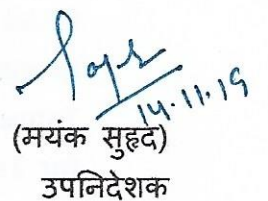 14.11.19
(मयंक सुहृद)
उपनिदेशक